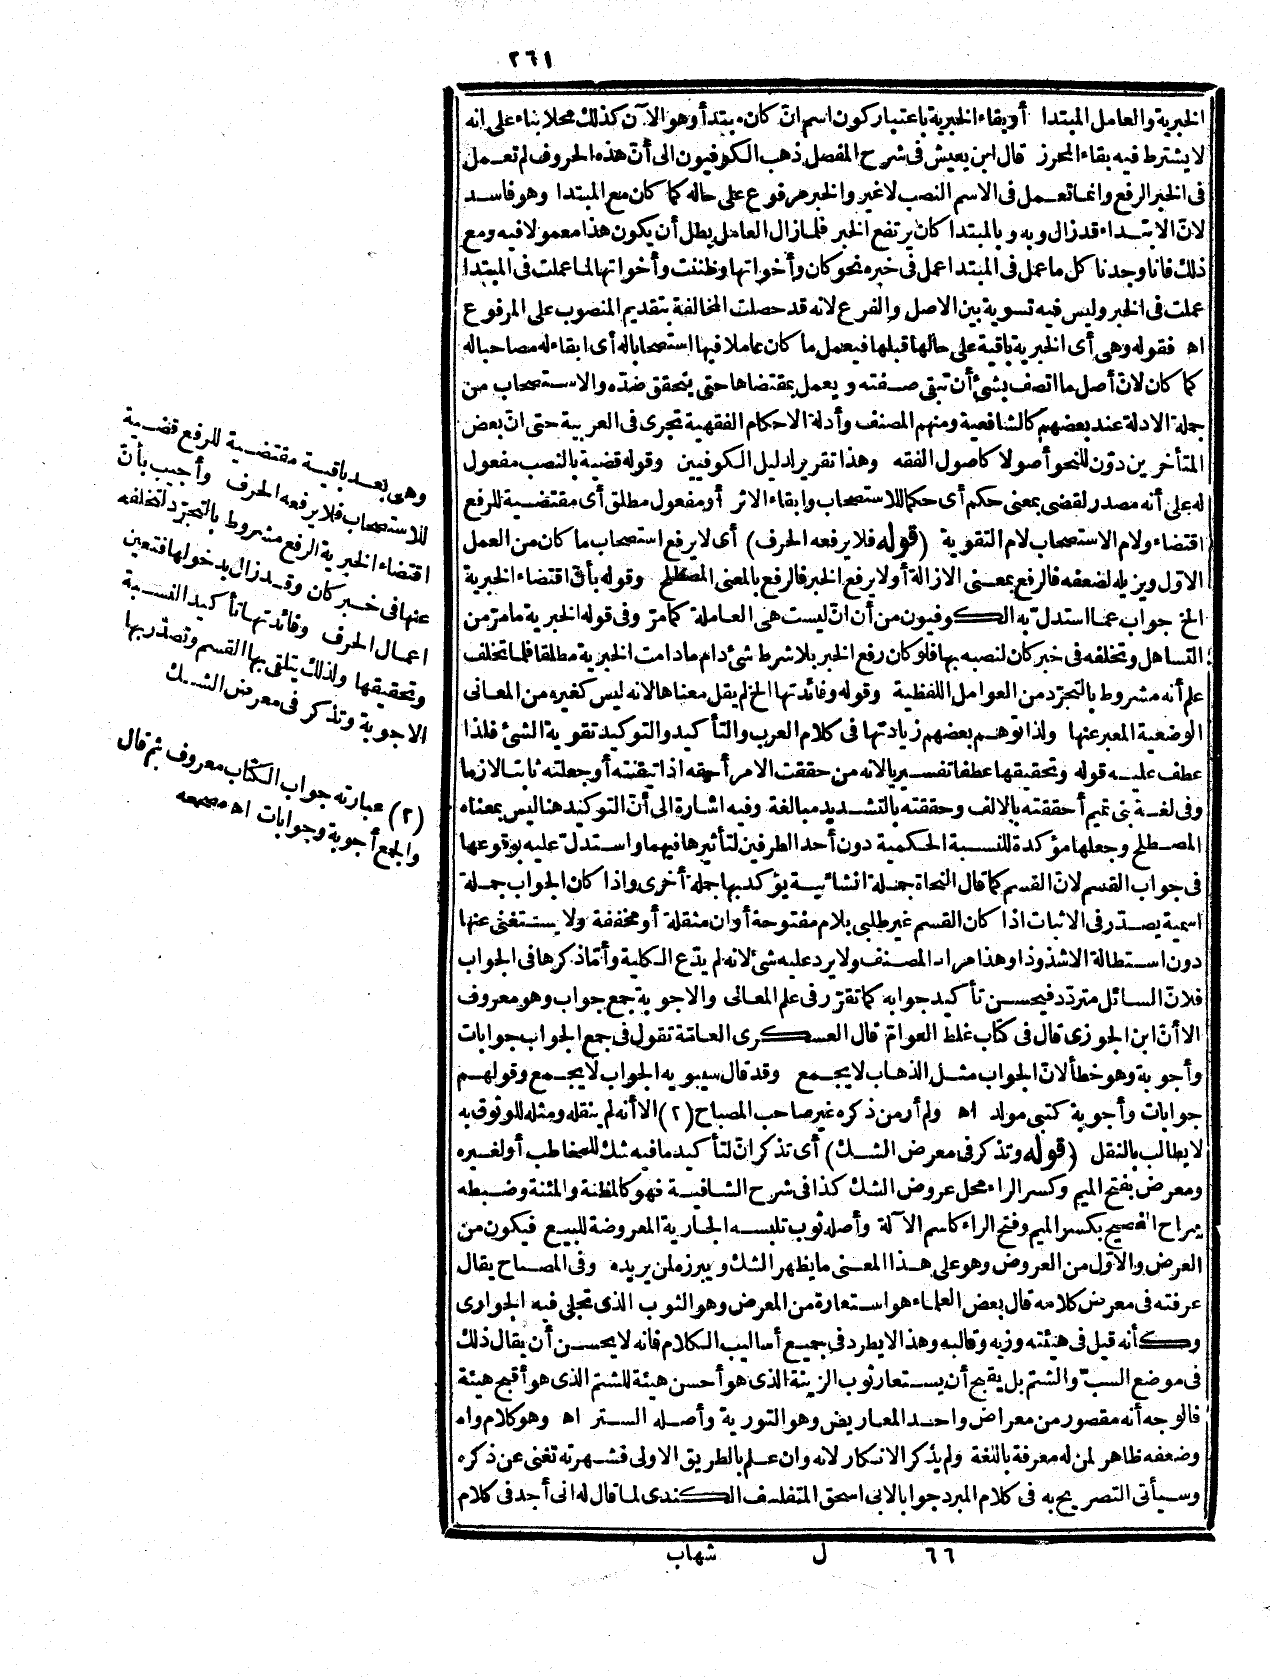 ٢٦١
الخبرية والعامل المبتدا أو بقاء الخبرية باعتبار كون اسم انّ كان مبتدأ وهو الآن كذلك محلا بناء على انه
لا يشترط فيه بقاء المحرز قال ابن يعيش فى شرح المفصل ذهب الكوفيون الى أنّ هذه الحروف لم تعمل
فى الخبر الرفع وانما تعمل فى الاسم النصب لا غير والخبر مرفوع على حاله كما كان مع المبتدا وهو فاسد
لانّ الابتداء قد زال وبه وبالمبتدا كان يرتفع الخبر فلما زال العامل بطل أن يكون هذا معمولا فيه ومع
ذلك فانا وجدنا كل ما عمل فى المبتدا عمل فى خبره نحو كان وأخواتها وظننت وأخواتها لما عملت فى المبتدا
عملت فى الخبر وليس فيه تسوية بين الاصل والفرع لانه قد حصلت المخالفة بتقديم المنصوب على المرفوع
اه فقوله وهى أى الخبرية باقية على حالها قبلها فيعمل ما كان عاملا فيها استصحابا له أى ابقاء له مصاحبا له
كما كان لانّ أصل ما اتصف بشئ أن تبقى صفته ويعمل بمقتضاها حتى يتحقق ضدّه والاستصحاب من
جملة الادلة عند بعضهم كالشافعية ومنهم المصنف وأدلة الاحكام الفقهية تجرى فى العربية حتى انّ بعض
المتأخرين دوّن للنحو أصولا كاصول الفقه وهذا تقرير لدليل الكوفيين وقوله قضية بالنصب مفعول
له على أنه مصدر لقضى بمعنى حكم أى حكما للاستصحاب وابقاء الاثر أو مفعول مطلق أى مقتضية للرفع
اقتضاء ولام الاستصحاب لام التقوية (قوله فلا يرفعه الحرف) أى لا يرفع استصحاب ما كان من العمل
الاوّل ويزيله لضعفه فالرفع بمعنى الازالة أو لا يرفع الخبر فالرفع بالمعنى المصطلح وقوله بأنّ اقتضاء الخبرية
الخ جواب عما استدل به الكوفيون من أن انّ ليست هى العاملة كما مرّ وفى قوله الخبرية ما مرّ من
التساهل وتخلفه فى خبر كان لنصبه بها فلو كان رفع الخبر بلا شرط شئ دام ما دامت الخبرية مطلقا فلما تخلف
علم أنه مشروط بالتجرّد من العوامل اللفظية وقوله وفائدتها الخ لم يقل معناها لانه ليس كغيره من المعانى
الوضعية المعبر عنها ولذا توهم بعضهم زيادتها فى كلام العرب والتأكيد والتوكيد تقوية الشئ فلذا
عطف عليه قوله وتحقيقها عطفا تفسيريا لانه من حققت الامر أحقه اذا تيقنته أو جعلته ثابتا لازما
وفى لغة بنى تميم أحققته بالالف وحققته بالتشديد مبالغة وفيه اشارة الى أنّ التوكيد هنا ليس بمعناه
المصطلح وجعلها مؤكدة للنسبة الحكمية دون أحد الطرفين لتأثيرها فيهما واستدلّ عليه بوقوعها
فى جواب القسم لانّ القسم كما قال النحاة جملة انشائية يؤكد بها جملة أخرى واذا كان الجواب جملة
اسمية يصدّر فى الاثبات اذا كان القسم غير طلبى بلام مفتوحة أو ان مثقلة أو مخففة ولا يستغنى عنها
دون استطالة الا شذوذا وهذا مراد المصنف ولا يرد عليه شئ لانه لم يدّع الكلية وأمّا ذكرها فى الجواب
فلانّ السائل متردّد فيحسن تأكيد جوابه كما تقرّر فى علم المعانى والاجوبة جمع جواب وهو معروف
الا أنّ ابن الجوزى قال فى كتاب غلط العوامّ قال العسكرى العامّة تقول فى جمع الجواب جوابات
وأجوبة وهو خطأ لانّ الجواب مثل الذهاب لا يجمع وقد قال سيبويه الجواب لا يجمع وقولهم
جوابات وأجوبة كتبى مولد اه ولم أر من ذكره غير صاحب المصباح (٢) الا أنه لم ينقله ومثله للوثوق به
لا يطالب بالنقل (قوله وتذكر فى معرض الشك) أى تذكر انّ لتأكيد ما فيه شك للمخاطب أو لغيره
ومعرض بفتح الميم وكسر الراء محل عروض الشك كذا فى شرح الشافية فهو كالمظنة والمئنة وضبطه
شراح الفصيح بكسر الميم وفتح الراء كاسم الآلة وأصله ثوب تلبسه الجارية المعروضة للبيع فيكون من
العرض والاوّل من العروض وهو على هذا المعنى ما يظهر الشك ويبرزه لمن يريده وفى المصباح يقال
عرفته فى معرض كلامه قال بعض العلماء هو استعارة من المعرض وهو الثوب الذى تجلى فيه الجوارى
وكأنه قيل فى هيئته وزيه وقالبه وهذا لا يطرد فى جميع أساليب الكلام فانه لا يحسن أن يقال ذلك
فى موضع السبّ والشتم بل يقبح أن يستعار ثوب الزينة الذى هو أحسن هيئة للشتم الذى هو أقبح هيئة
فالوجه أنه مقصور من معراض واحد المعاريض وهو التورية وأصله الستر اه وهو كلام واه
وضعفه ظاهر لمن له معرفة باللغة ولم يذكر الانكار لانه وان علم بالطريق الاولى فشهرته تغنى عن ذكره
وسيأتى التصريح به فى كلام المبرد جوابا لابى اسحق المتفلسف الكندى لما قال له انى أجد فى كلام
وهى بعد باقية مقتضية للرفع قضية
للاستصحاب فلا يرفعه الحرف وأجيب بأنّ
اقتضاء الخبرية الرفع مشروط بالتجرّد لتخلفه
عنها فى خبر كان وقد زال بدخولها فتعين
اعمال الحرف وفائدتها تأكيد النسبة
وتحقيقها ولذلك يتلقى بها القسم وتصدّر بها
الاجوبة وتذكر فى معرض الشك
(٢) عبارته جواب الكتاب معروف ثم قال
والجمع أجوبة وجوابات اه مصححه
٦٦ ل شهاب